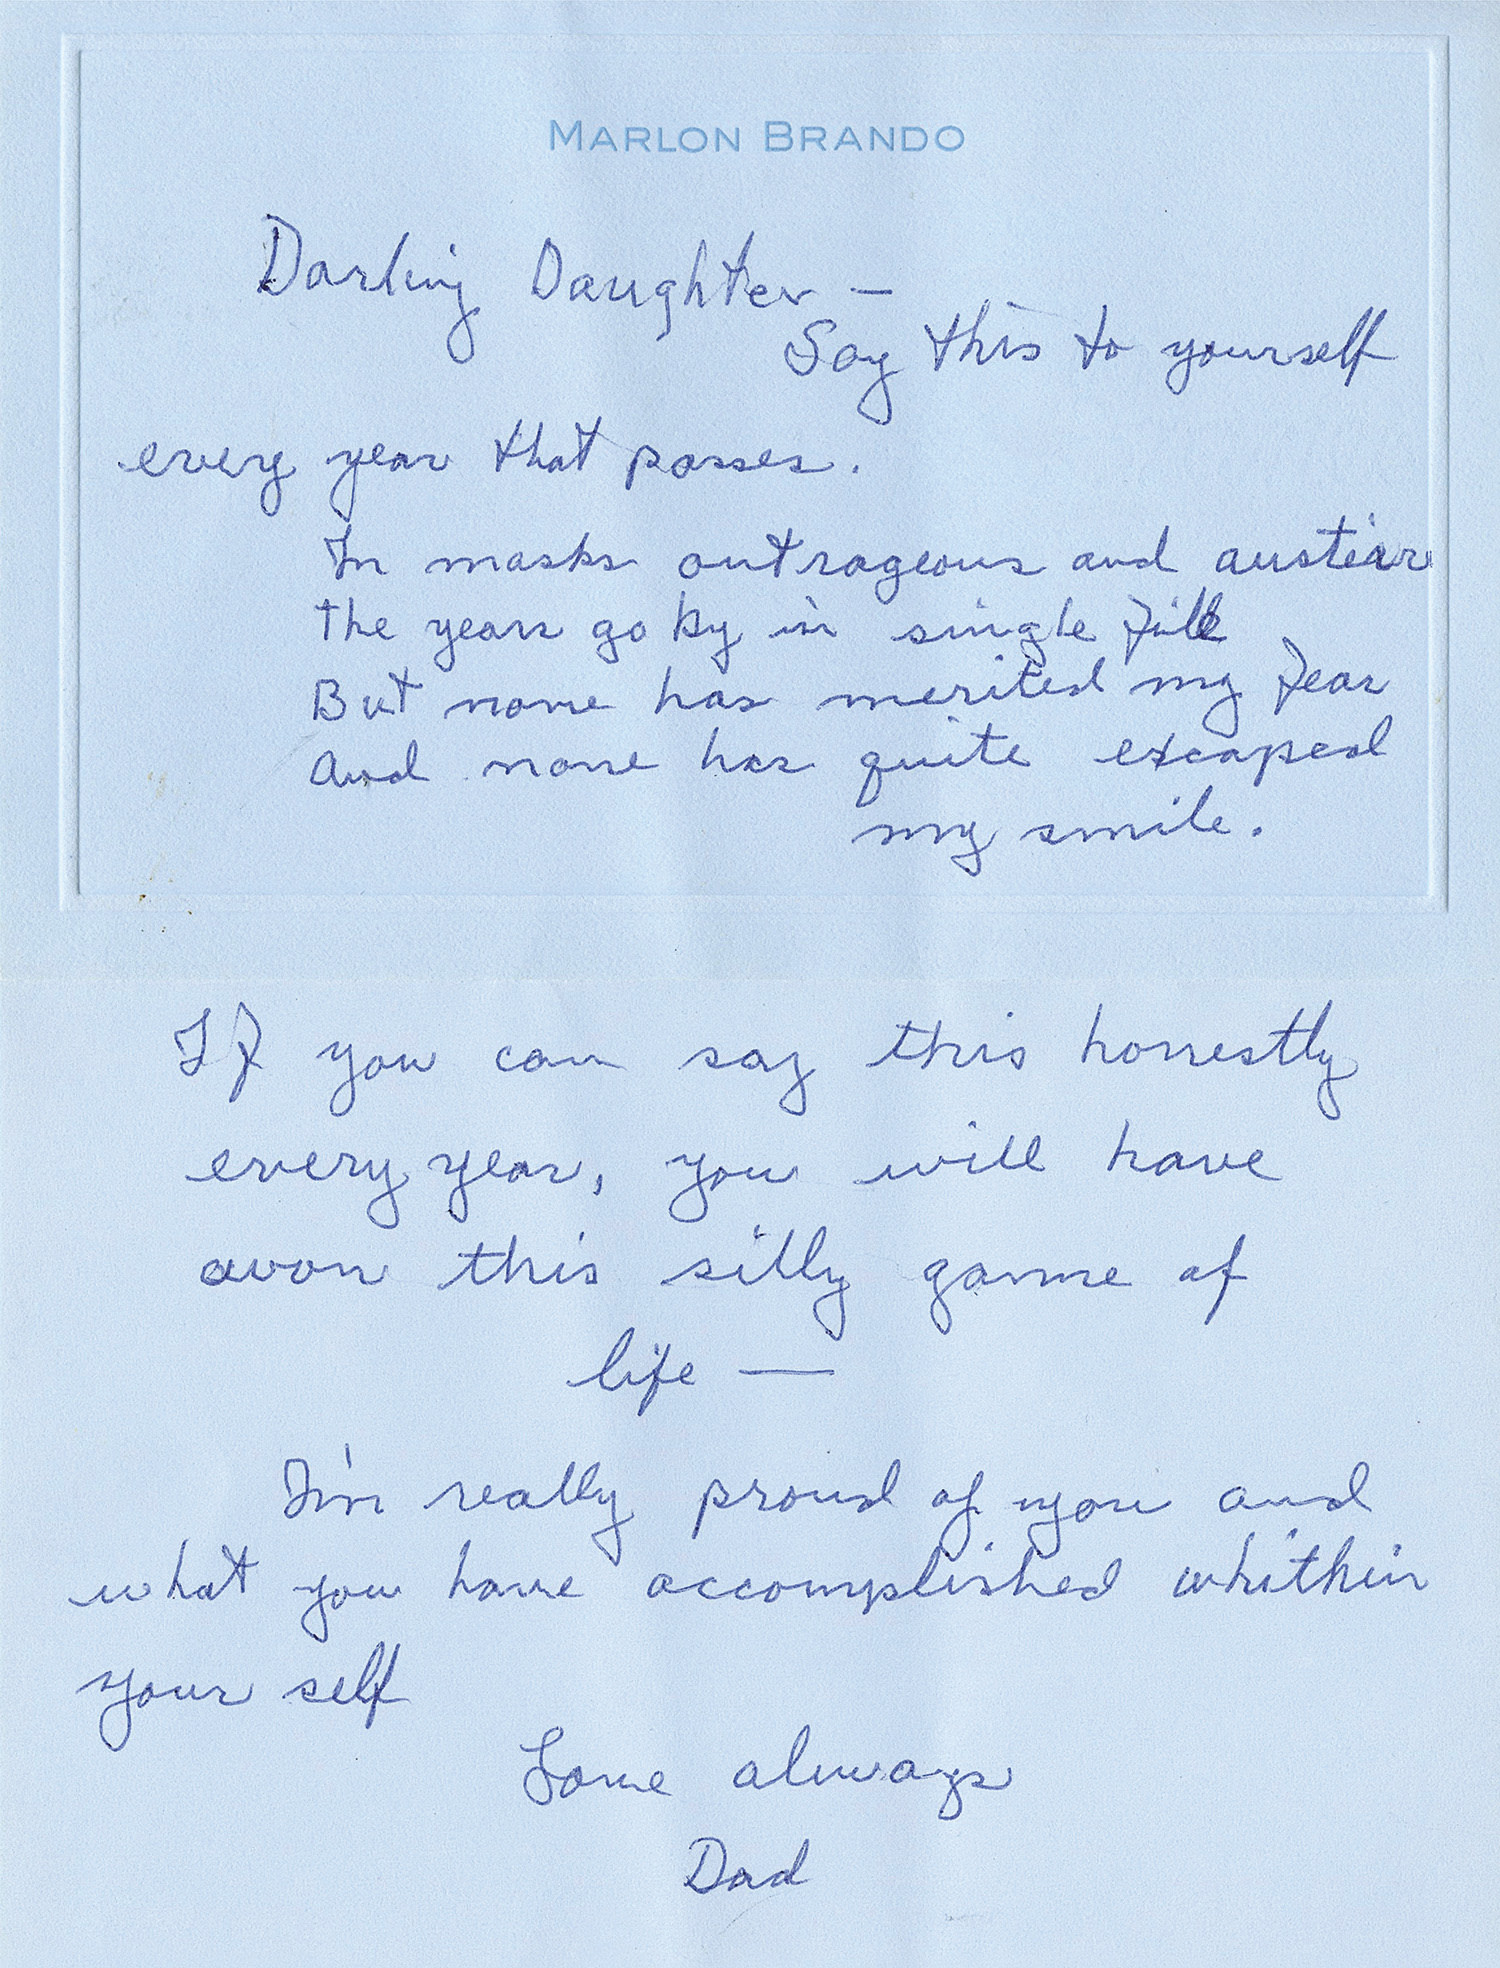 MARLON BRANDO
Darling Daughter —
Say this to yourself
every year that passes.
In masks outrageous and austear
The years go by in single file
But none has merited my fear
And none has quite escaped
my smile.
If you can say this honestly
every year, you will have
won this silly game of
life —
I'm really proud of you and
what you have accomplished whithin
your self
Love always
Dad